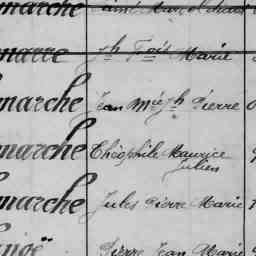 marche
marre Jh Fois Marie
marche Jean Mie Jh Pierre
marche Théophile Maurice
Julien
marche Jules Pierre Marie
Pierre Jean Marie